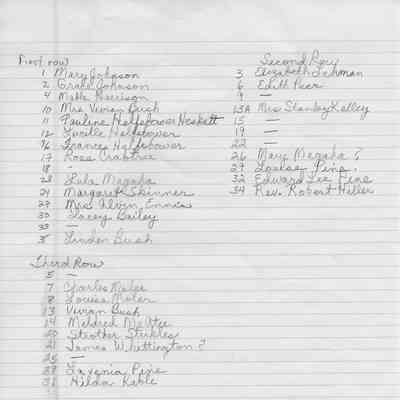 First row
1 Mary Johnson
2 Grace Johnson
4 Mable Harrison
10 Mrs Vivian Bush
11 Pauline Halfpower Neskett
12 Lucille Halfpower
16 Frances Halfpower
17 Rosa Crabtree
18
23 Lula Magaha
24 Margaret Skinner
27 Mrs Alvin, Ennis
30 Lacey Bailey
33 —
35 Linden Bush
Second Row
3 Elizabeth Lehman
6 Edith Peer
9 —
13A Mrs Stanley Kelley
15 —
19 —
22 —
26 Mary Magaha ?
29 Louise Pine.
32 Edward Lee Pine
34 Rev. Robert Hiller
Third Row
5 —
7 Charles
8 Louise Moler
13 Vivian Bush
14 Mildred
20 Strother
21 James Whittington ?
25 —
28 Lavenia Pine
31 Hilda Kable